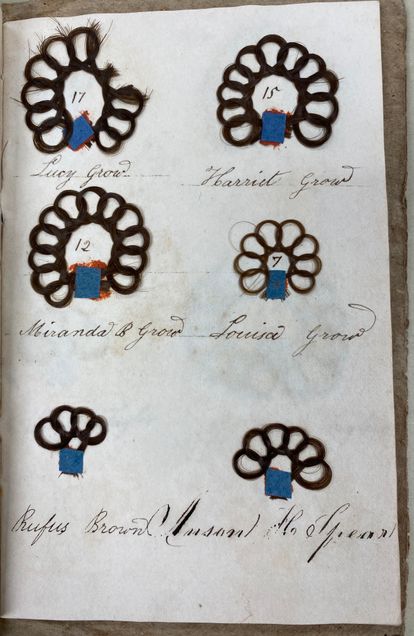 17 15
Lucy Grow Harriet Grow
12 7
Miranda B Grow Louisa Grow
Rufus Brown Anson H Spear